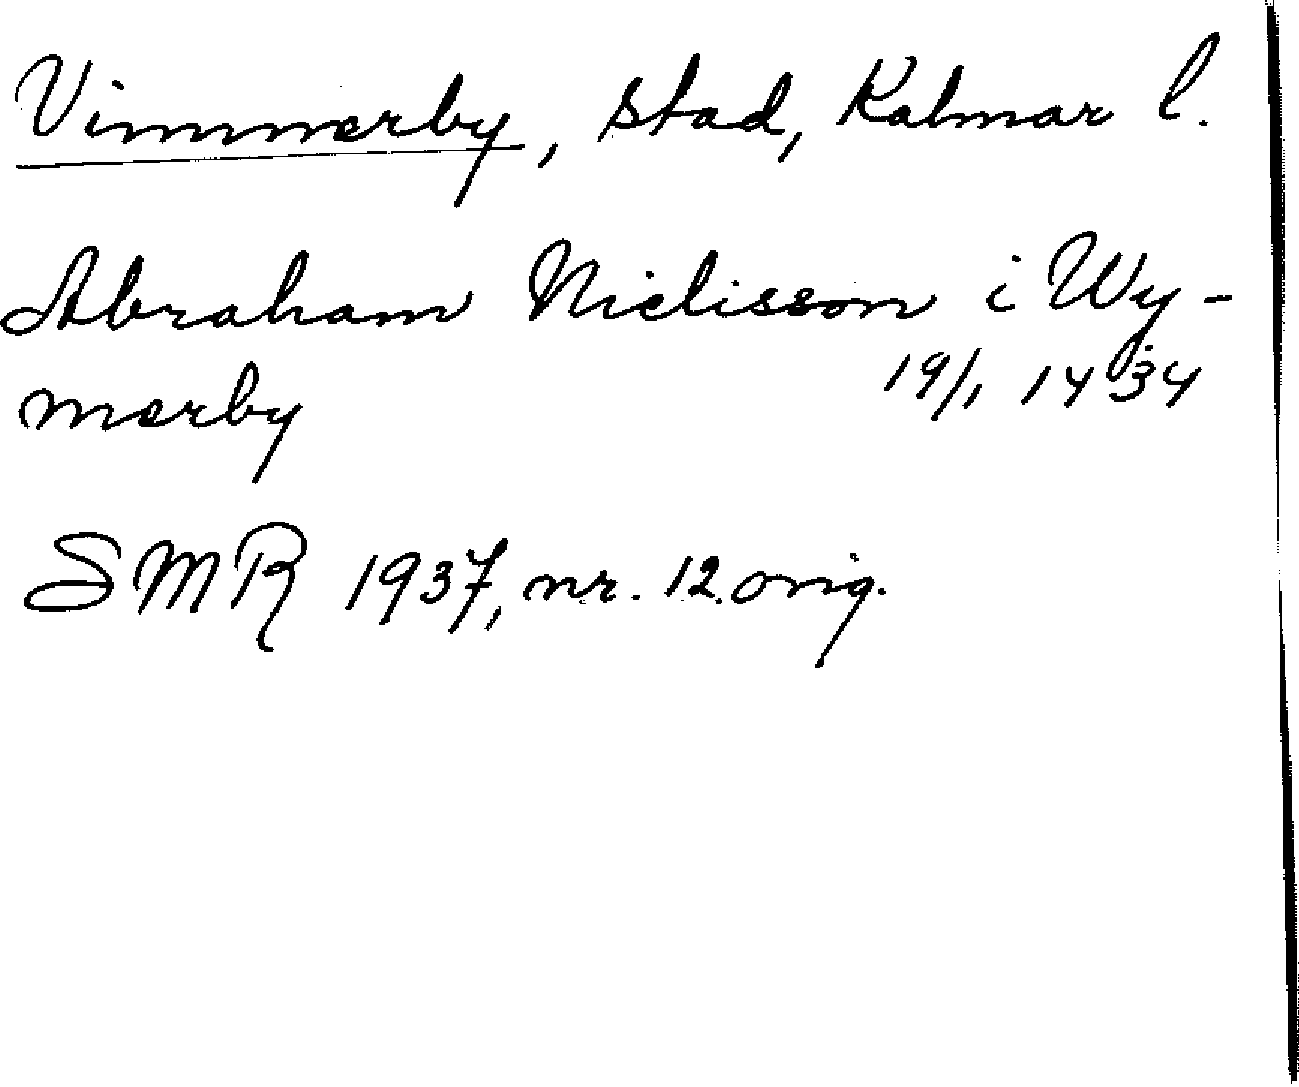 Vimmerby, stad, Kalmar l.
Abraham Nielisson i Wy-
merby 19/1 1434
SMR 1937, nr. 12. orig.